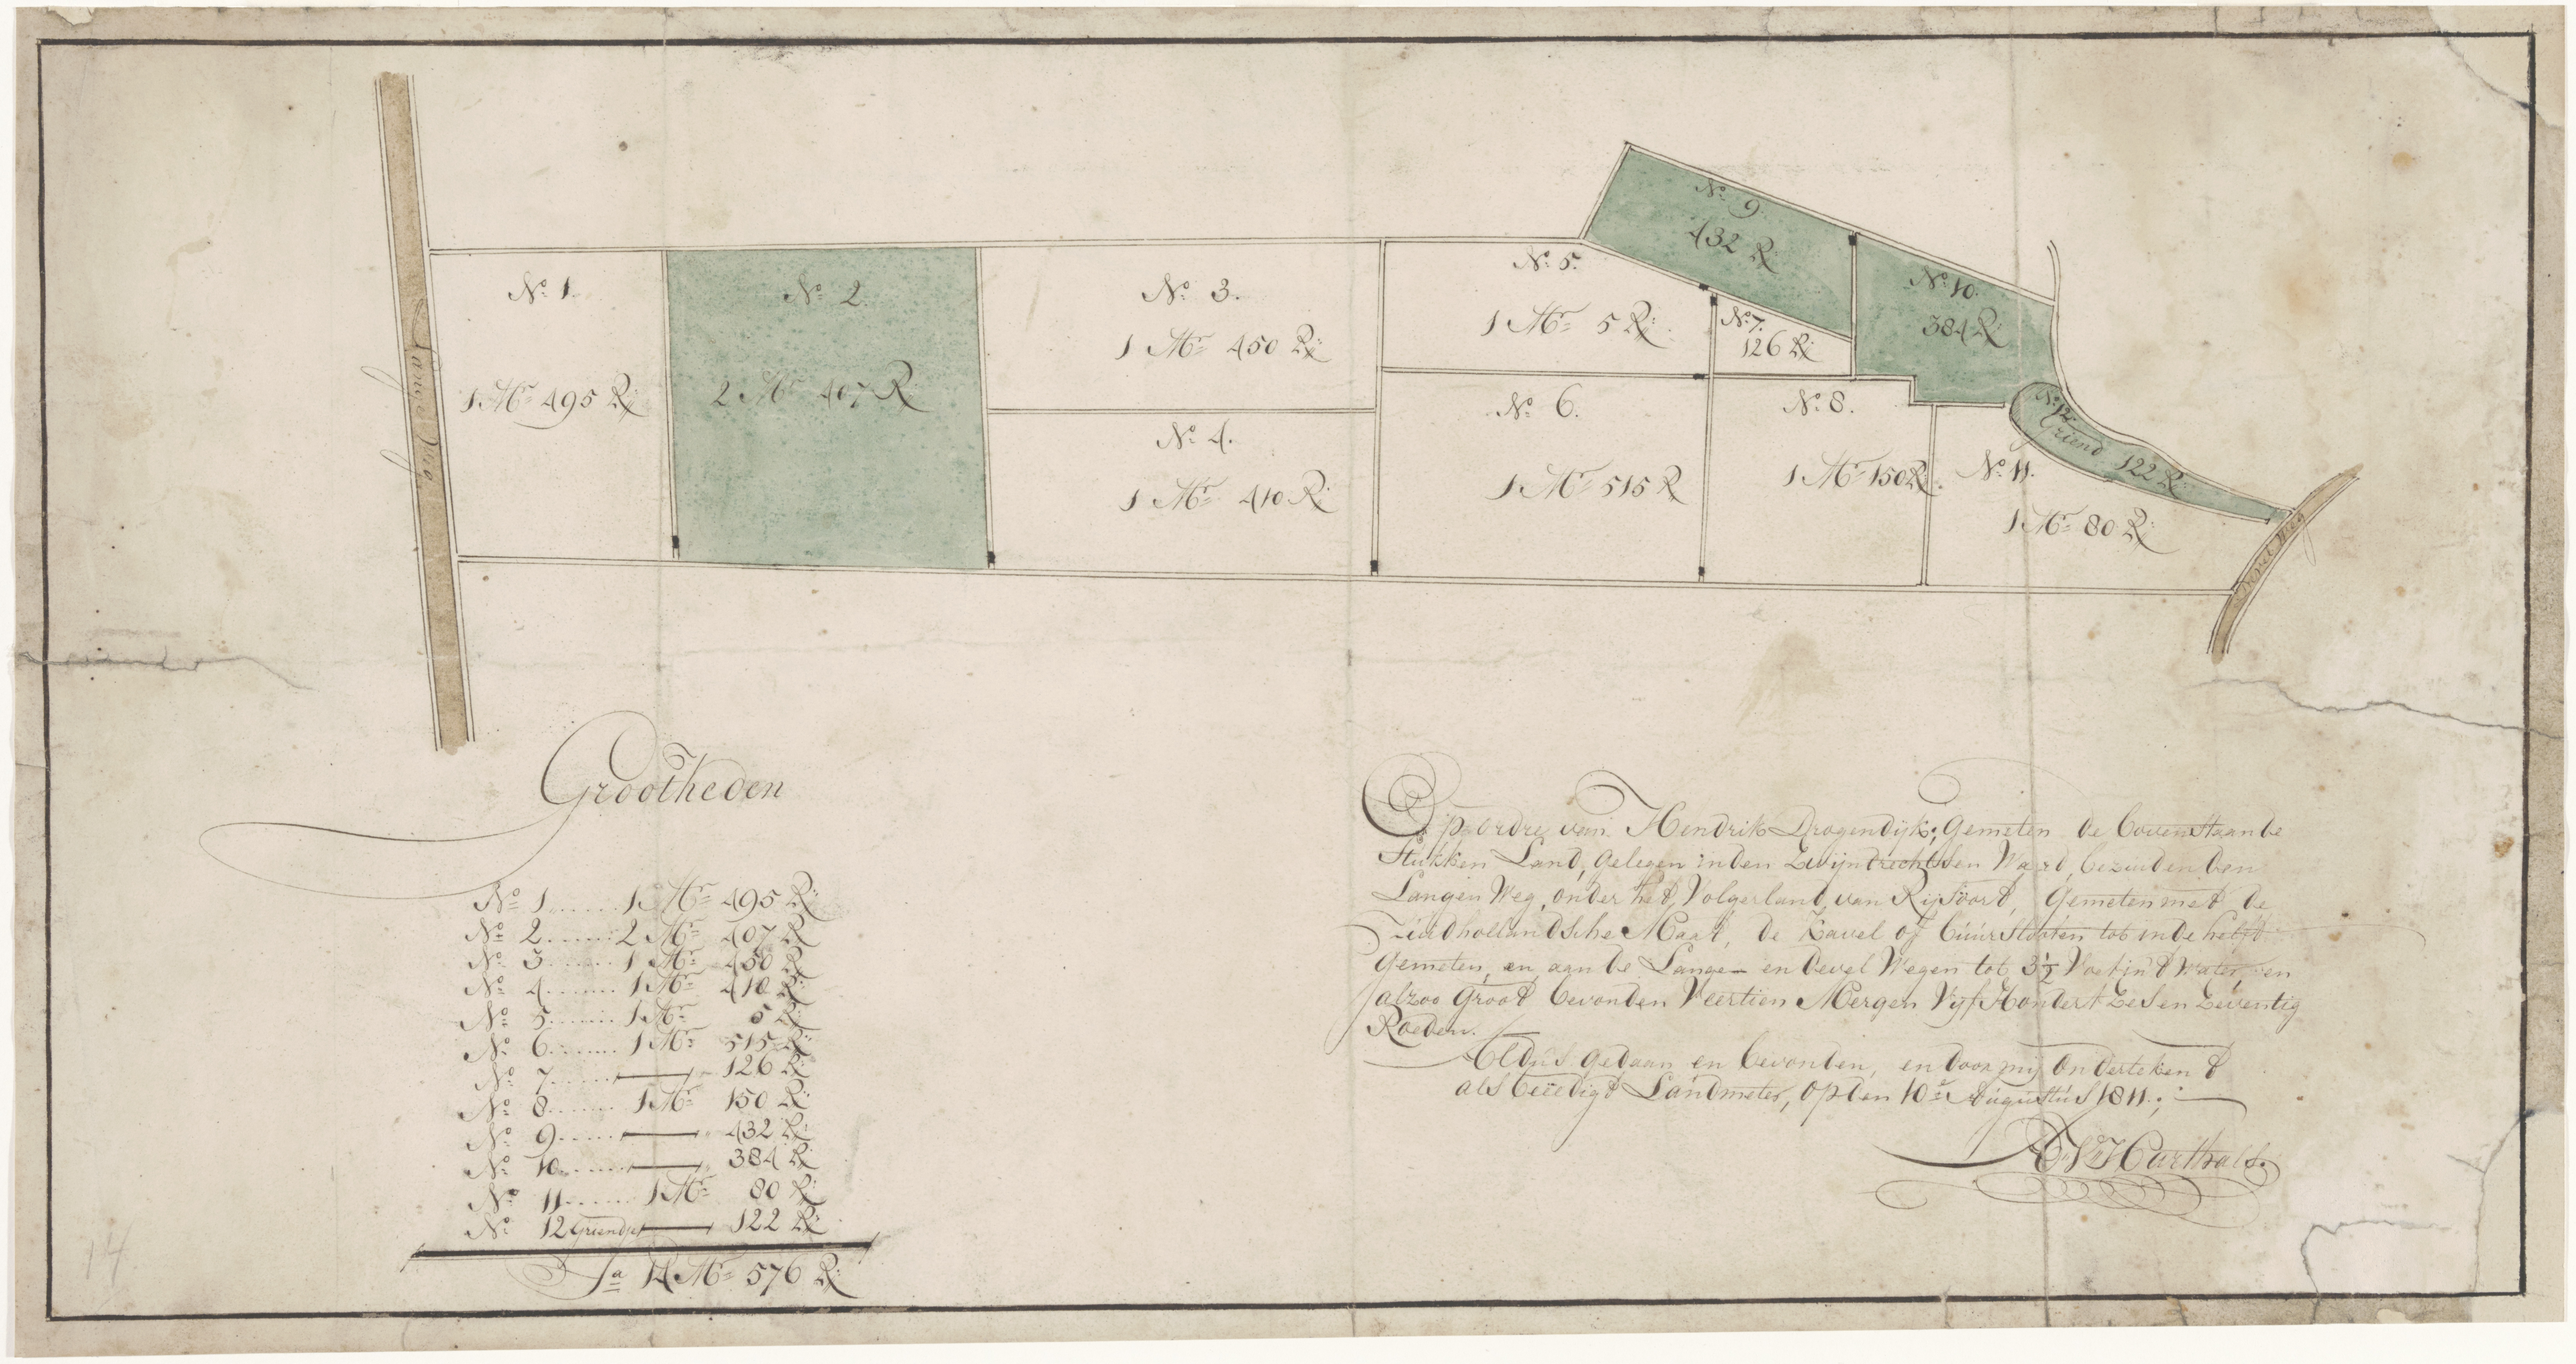 Lange Weg
No. 1.
1 Mr. 495 R:
No. 2.
2 Mr. 407 R:
No. 3.
1 Mr. 450 R:
No. 4.
1 Mr. 410 R:
No. 5.
1 Mr. 5 R:
No. 6.
1 Mr. 515 R
No. 7.
126 R:
No. 8.
1 Mr. 150 R:
No. 9.
432 R:
No. 10.
384 R:
No. 11.
1 Mr. 80 R:
No. 12.
Griend 122 R:
Devel Weg
Grootheden
No. 1 ...... 1 Mr. 495 R:
No. 2 ...... 2 Mr. 407 R:
No. 3 ...... 1 Mr. 450 R:
No. 4 ...... 1 Mr. 410 R:
No. 5 ...... 1 Mr. 5 R:
No. 6 ...... 1 Mr. 515 R:
No. 7 ...... — 126 R:
No. 8 ...... 1 Mr. 150 R:
No. 9 ...... — 432 R:
No. 10 ...... — 384 R:
No. 11 ...... 1 Mr. 80 R:
No. 12 Griendje — 122 R:
Sa. 14 Mr. 576 R:
Op ordre van Hendrik Dragendijk; Gemeten de bovenstaande
Stukken Land, gelegen in den Zwijndrechtsen Waard, bezuiden den
Langen Weg, onder het Volgerland van Rijsoord, Gemeten met de
Zuidhollandsche Maat, de Kavel of buurslooten tot in de helft
Gemeten, en aan de Lange- en Devel Wegen tot 3½ Voet in 't Water, en
alzoo Groot bevonden Veertien Mergen Vijf Hondert Zes en Zeventig
Roeden.
Aldus gedaan en bevonden, en door mij ondertekend
als beëedigd Landmeter, op den 10e Augustus 1811.;
14